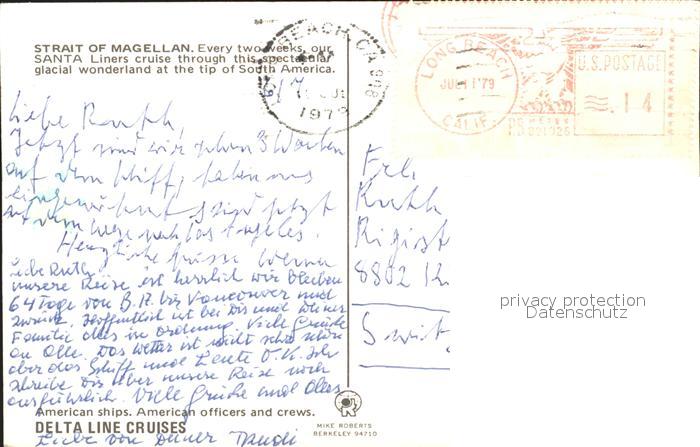 STRAIT OF MAGELLAN. Every two weeks, our
SANTA Liners cruise through this spectacular
glacial wonderland at the tip of South America.
BEACH, CA 908
1979
LONG BEACH
JUL 11 '79
CALIF.
U.S. POSTAGE
.14
Liebe Ruth,
Jetzt sind wir schon 3 Wochen
auf dem Schiff, haben uns
eingewöhnt & sind jetzt
auf dem Wege nach Los Angeles.
Herzliche Grüsse Werner
Liebe Ruth,
unsere Reise ist herrlich wir bleiben
64 Tage von B.A. bis Vancouver und
zurück. Hoffentlich ist bei Dir und Deiner
Familie alles in Ordnung. Viele Grüsse
an Alle. Das Wetter ist nicht sehr schön
aber das Schiff und Leute O.K. Ich
schreibe Dir über unsere Reise noch
ausführlich. Viele Grüsse und Alles
Liebe von Deiner
Frl.
Ruth
8802
privacy protection
Datenschutz
American ships. American officers and crews.
DELTA LINE CRUISES
MIKE ROBERTS
BERKELEY 94710